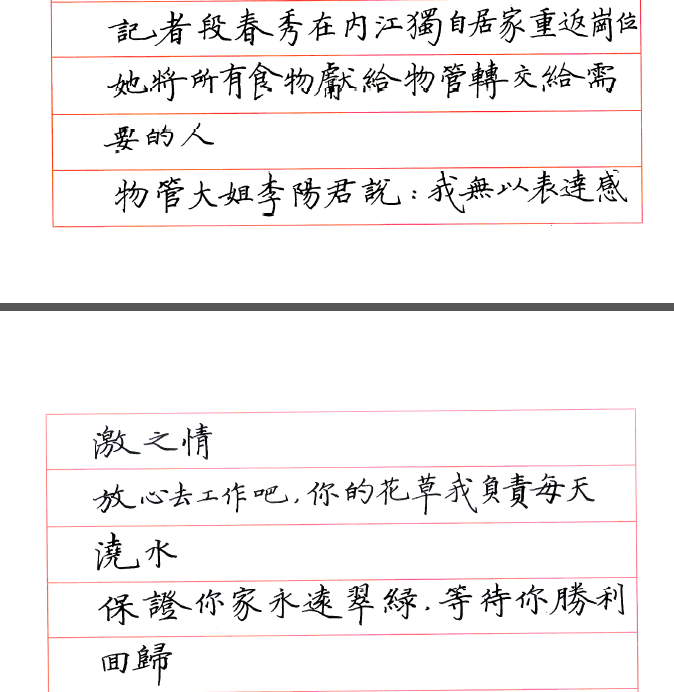 記者段春秀在内江獨自居家重返崗位
她將所有食物獻給物管轉交給需
要的人
物管大姐李陽君説：我無以表達感
激之情
放心去工作吧，你的花草我負責每天
澆水
保證你家永遠翠緑，等待你勝利
回歸